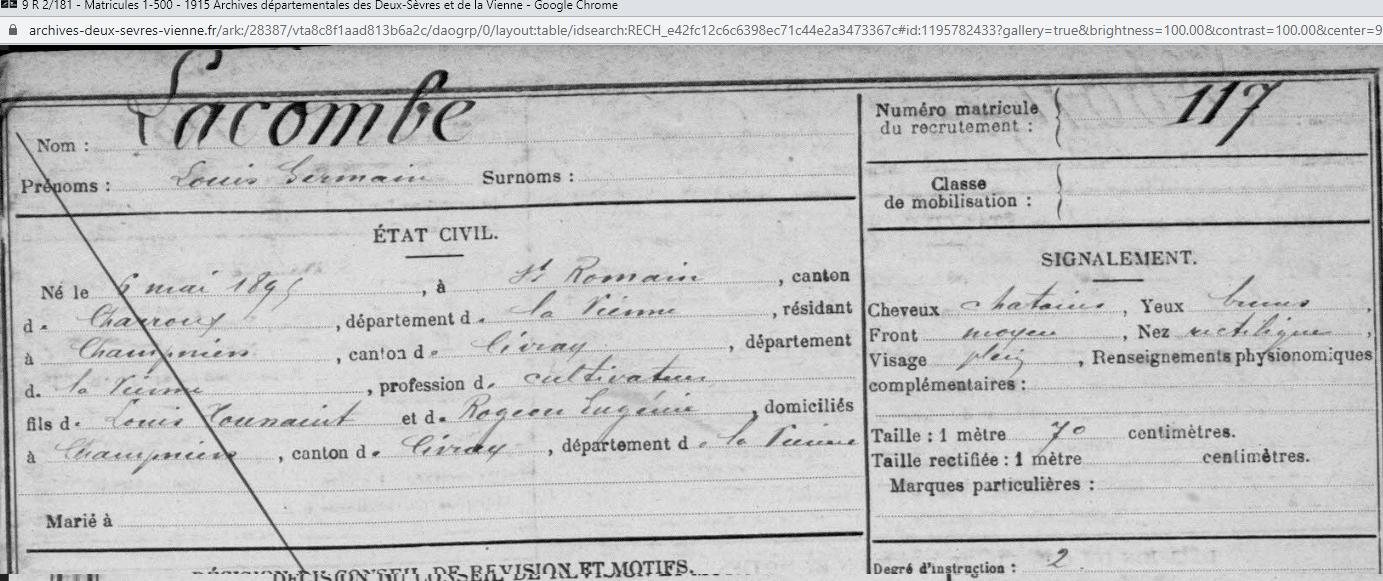 9 R 2/181 - Matricules 1-500 - 1915 Archives départementales des Deux-Sèvres et de la Vienne - Google Chrome
archives-deux-sevres-vienne.fr/ark:/28387/vta8c8f1aad813b6a2c/daogrp/0/layout:table/idsearch:RECH_e42fc12c6c6398ec71c44e2a3473367c#id:1195782433?gallery=true&brightness=100.00&contrast=100.00&center=9
Nom : Lacombe
Prénoms : Louis Germain Surnoms :
ÉTAT CIVIL.
Né le 6 mai 1895, à St Romain, canton
d. Charroux, département d. la Vienne, résidant
à Champniers, canton d. Civray, département
d. la Vienne, profession d. cultivateur
fils d. Louis Toussaint et d. Rogeon Eugénie, domiciliés
à Champniers, canton d. Civray, département d. la Vienne
Marié à
DÉCISION DU CONSEIL DE RÉVISION ET MOTIFS.
Numéro matricule
du recrutement : 117
Classe
de mobilisation :
SIGNALEMENT.
Cheveux chatains, Yeux bruns,
Front moyen, Nez rectiligne,
Visage plein, Renseignements physionomiques
complémentaires :
Taille : 1 mètre 70 centimètres.
Taille rectifiée : 1 mètre centimètres.
Marques particulières :
Degré d'instruction : 2